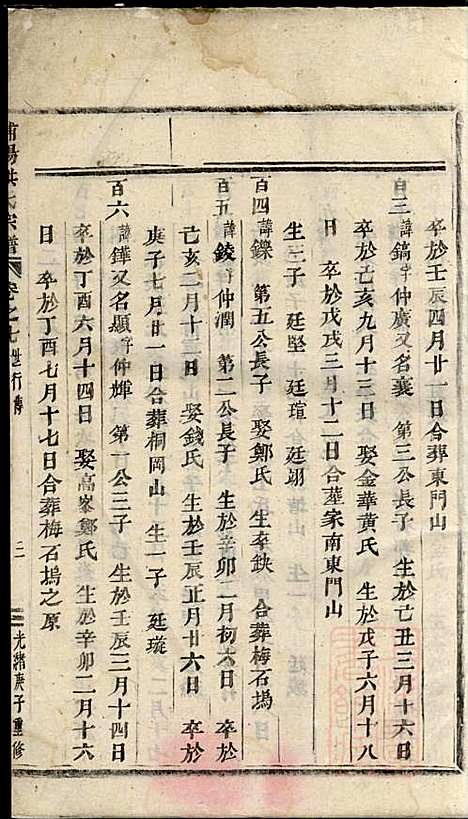 卒於壬辰四月廿一日合葬東門山
百三諱鎬字仲廣又名襄 第三公長子 生於己丑三月十六日
卒於己亥九月十三日 娶金華黃氏 生於戊子六月十八
日 卒於戊戌三月十二日合葬家南東門山
生三子 廷堅 廷瑄 廷翊
百四諱鑠 第五公長子 娶鄭氏 生卒缺 合葬梅石塢
百五諱錂字仲潤 第二公長子 生於辛卯二月初六日 卒於
己亥二月十三日 娶錢氏 生於壬辰正月廿六日 卒於
庚子七月廿一日合葬桐岡山 生一子 廷璇
百六諱鏵又名顯字仲輝 第一公三子 生於壬辰三月十四日
卒於丁酉六月十四日 娶高峯鄭氏 生於辛卯二月十六
日 卒於丁酉七月十七日合葬梅石塢之原
浦陽洪氏宗譜 卷之七 世行傳 三 光緒庚子重修